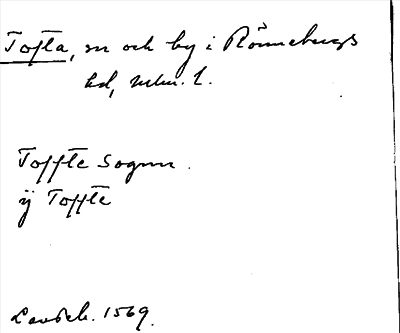 Tofta, sn och by i Rönnebergs
hd, Mlm. l.
Toffte Sognn
ij Toffte
Landeb. 1569.